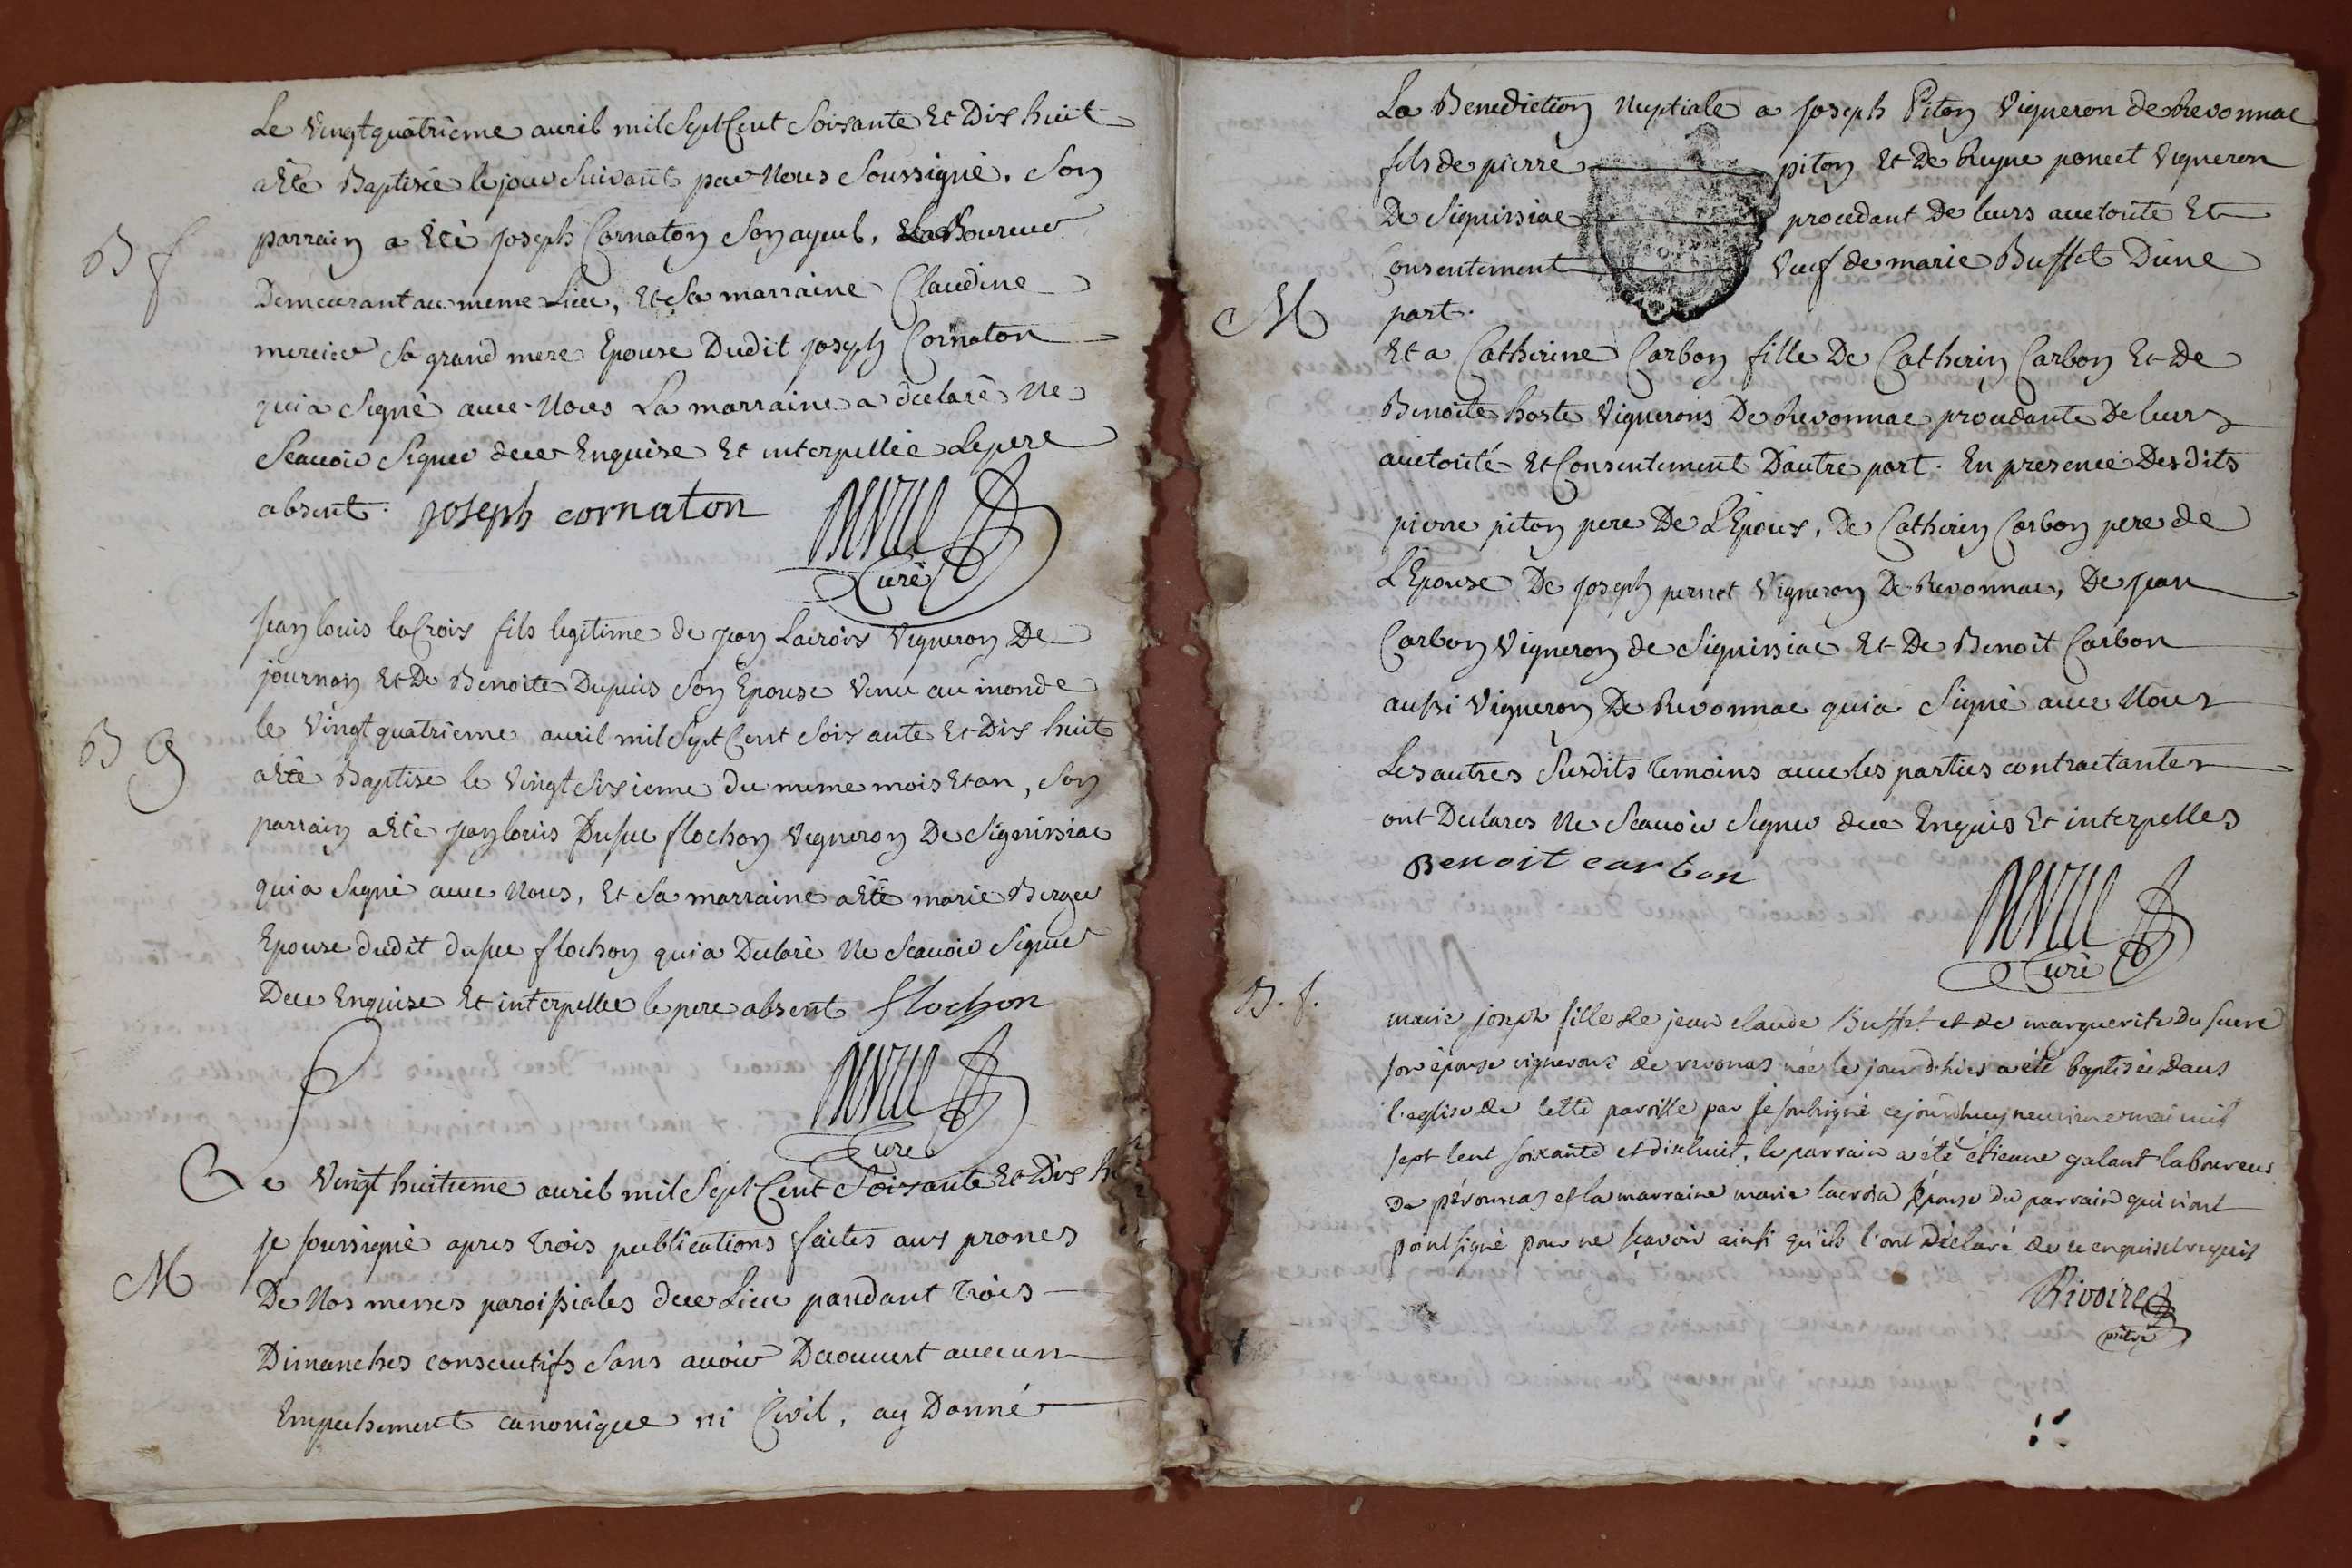 Le Vingt quatrieme auril mil Sept Cent Soixante Et Dix huit
B f
a Eté Baptisée le jour Suivant par Nous Soussigné. Son
parrain a Eté joseph Cornaton Son ayeul, Laboureur
Demeurant au meme Lieu, Et Sa marraine Claudine
mercier Sa grand mere Epouse Dudit joseph Cornaton
qui a Signé avec Nous La marraine a declaré Ne
Scauoir Signer de ce Enquise Et interpellée Le pere
absent. joseph cornaton
Curé
B G
jean louis la Crois fils legitime de jean Lacrois Vigneron De
journan Et De Benoite Dupuis Son Epouse Venu au monde
le Vingt quatrieme auril mil Sept Cent Soixante Et Dix huit
a Eté Baptisé le Vingt Sixieme du meme mois Et an, Son
parrain a Eté jean louis Flochon Vigneron De Signissiac
qui a Signé avec Nous, Et Sa marraine a Eté marie Berger
Epouse dudit flochon qui a Declaré Ne Scauoir Signer
De ce Enquise Et interpellee le pere absent flochon
Curé
Le Vingt huitieme auril mil Sept Cent Soixante Et Dix
M
je soussigné apres trois publications faites aux prones
De Nos messes paroissiales de ce Lieu pandant trois
Dimanches consecutifs Sans auoir Decouuert aucun
Empechement canonique ni Civil, ay Donné
La Benediction Nuptiale a joseph Piton Vigneron de Revonnac
fils de pierre piton Et De Reyne poncet Vigneron
De Signissiac procedant De leurs auctorité Et
Consentement Veuf de marie Buffet D'une
M
part.
Et a Catherine Carbon fille De Catherin Carbon Et De
Benoite hoste Vignerons De Revonnac procedante De leurs
auctorité Et Consentement D'autre part. En presence Desdits
pierre piton pere De L'Epoux, De Catherin Carbon pere de
L'Epouse De joseph pernet Vigneron De Revonnac, De jean
Carbon Vigneron de Signissiac Et De Benoit Carbon
aussi Vigneron De Revonnac qui a Signé avec Nous
Les autres Susdits temoins avec les parties contractantes
ont Declarés Ne Scauoir Signer de ce Enquis Et interpelles
Benoit carbon
Curé
B. f.
marie joseph fille de jean claude Buffet et de marguerite
son épouse vignerons de revonas née le jour d'hier a été baptisée dans
l'eglise de cette paroisse par je soussigné cejourdhuy neuvieme mai mil
sept cent soixante et dixhuit, le parrain a été étienne galant laboureur
de péronnas et la marraine marie lacroix épouse du parrain qui n'ont
point signé pour ne sçavoir ainsi qu'ils l'ont déclaré de ce enquis et requis
Rivoire
prêtre